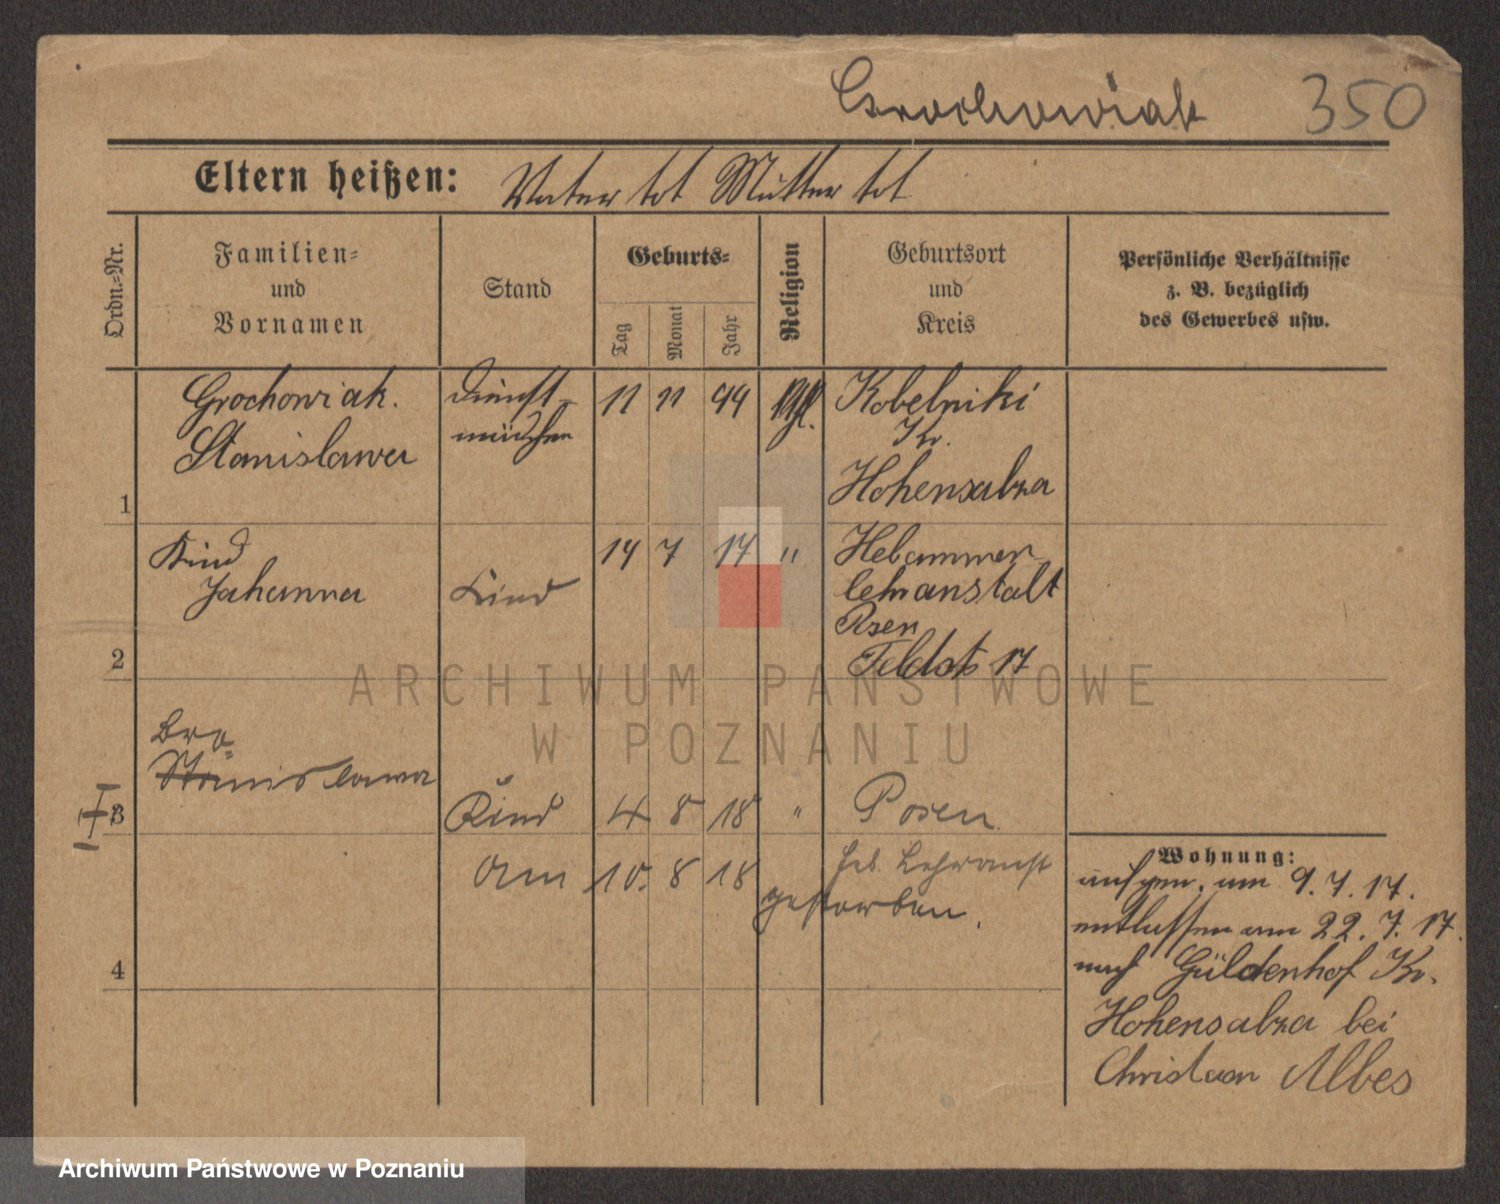 Grochowiak 350
Eltern heißen: Vater tot Mutter tot
Ordn.-Nr.
Familien-
und
Vornamen
Stand
Geburts-
Tag
Monat
Jahr
Religion
Geburtsort
und
Kreis
Persönliche Verhältnisse
z. B. bezüglich
des Gewerbes usw.
1
Grochowiak.
Stanislawa
Dienst-
mädchen
11 11 99
Kobelniki
Kr.
Hohensalza
2
Kind
Johanna
Kind
14 7 17 "
Hebammen
lehranstalt
Posen
Feldstr 17
3
Bro-
Stanislawa
Kind 4 8 18 " Posen
Heb. Lehranst
Am 10. 8 18
gestorben.
4
Wohnung:
aufgen. am 9. 7. 17.
entlassen am 22. 7. 17.
nach Güldenhof Kr.
Hohensalza bei
Christian Albes
ARCHIWUM PAŃSTWOWE
W POZNANIU
Archiwum Państwowe w Poznaniu